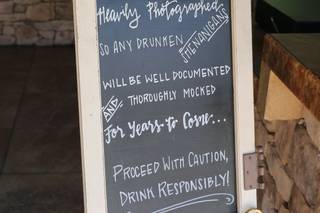 Heavily Photographed
SO ANY DRUNKEN SHENANIGANS
WILL BE WELL DOCUMENTED
AND THOROUGHLY MOCKED
For Years to Come...
PROCEED WITH CAUTION,
DRINK RESPONSIBLY!